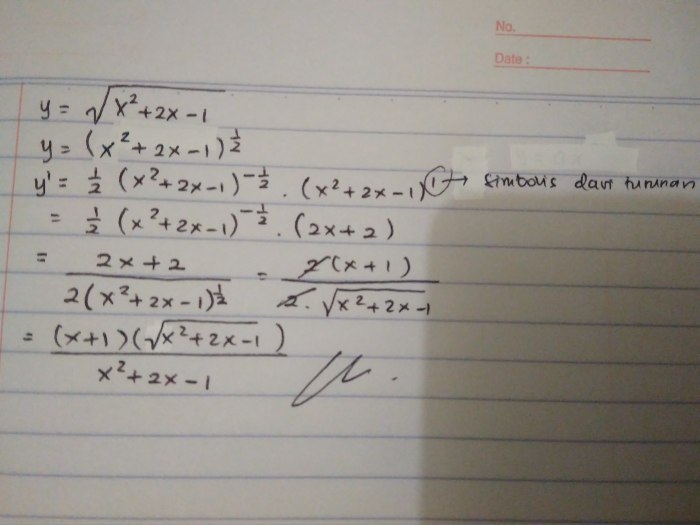 No.
Date :
y = √(x²+2x-1)
y = (x²+2x-1)^(1/2)
y' = 1/2 (x²+2x-1)^(-1/2) . (x²+2x-1)' → Simbolis dari turunan
= 1/2 (x²+2x-1)^(-1/2) . (2x+2)
= (2x+2)/(2(x²+2x-1)^(1/2)) = (2(x+1))/(2.√(x²+2x-1))
= ((x+1)(√(x²+2x-1)))/(x²+2x-1)